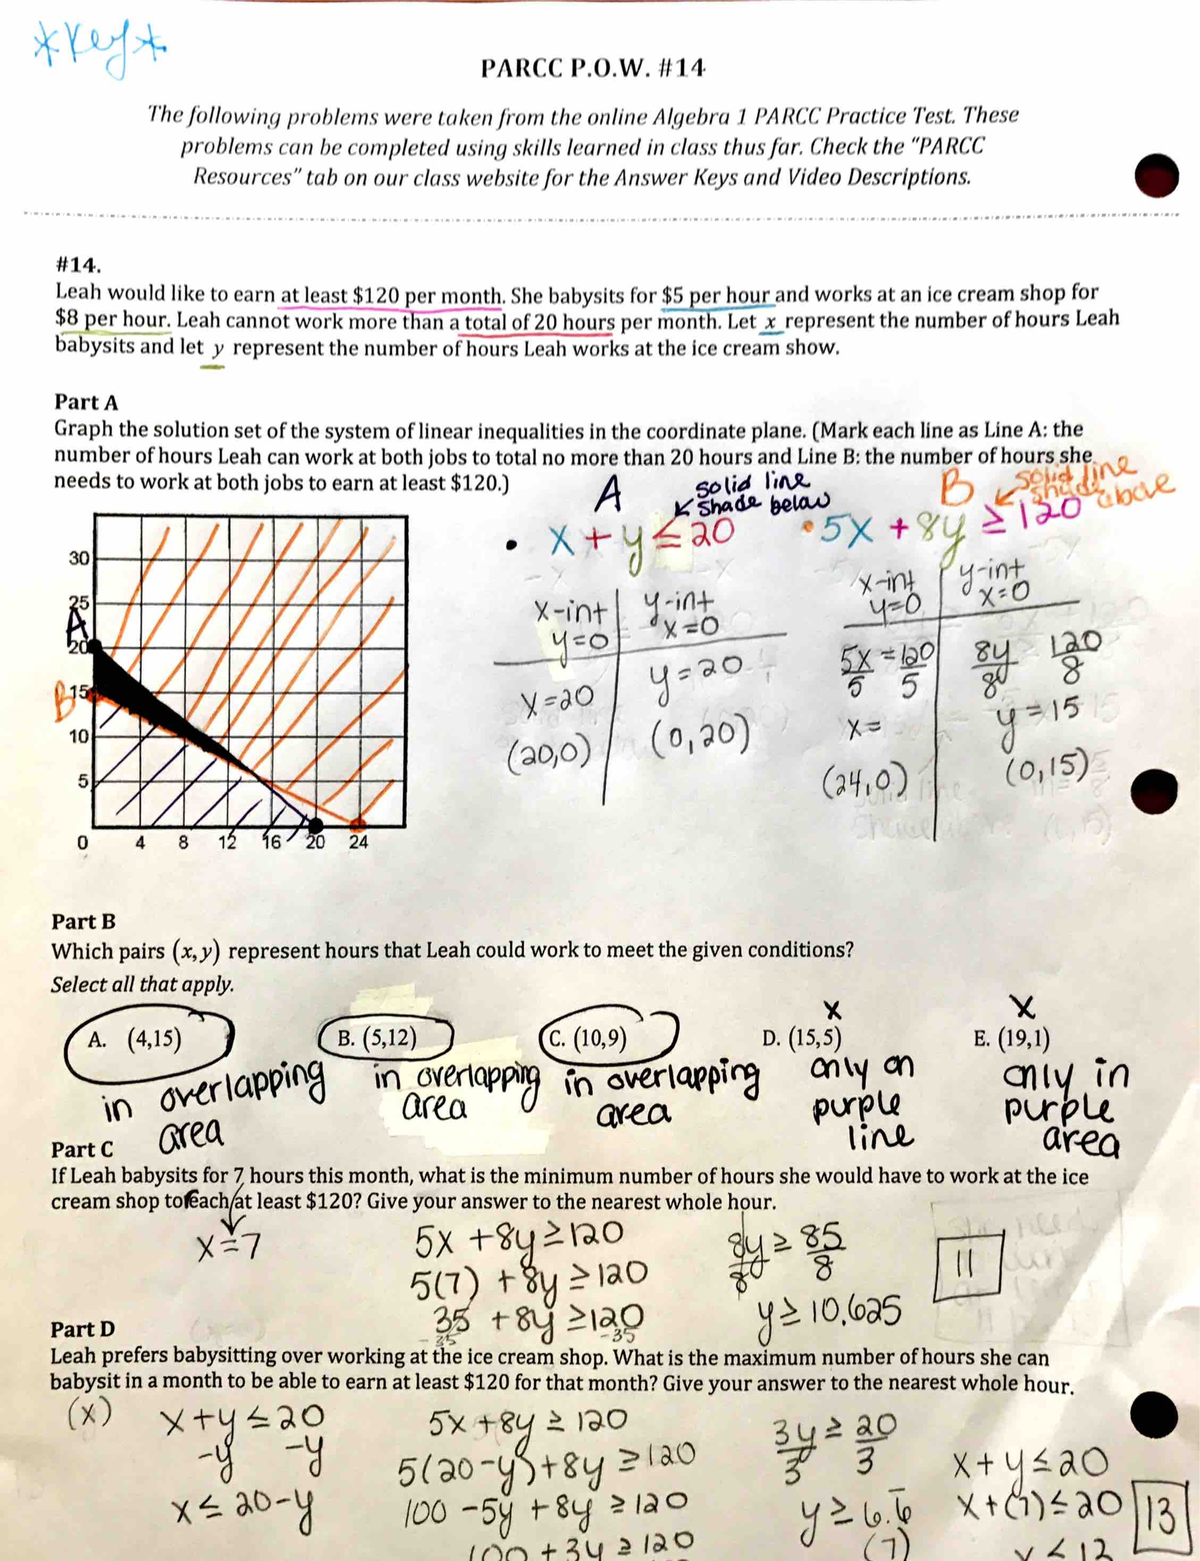 *Key*
PARCC P.O.W. #14
The following problems were taken from the online Algebra 1 PARCC Practice Test. These
problems can be completed using skills learned in class thus far. Check the “PARCC
Resources” tab on our class website for the Answer Keys and Video Descriptions.
#14.
Leah would like to earn at least $120 per month. She babysits for $5 per hour and works at an ice cream shop for
$8 per hour. Leah cannot work more than a total of 20 hours per month. Let x represent the number of hours Leah
babysits and let y represent the number of hours Leah works at the ice cream show.
Part A
Graph the solution set of the system of linear inequalities in the coordinate plane. (Mark each line as Line A: the
number of hours Leah can work at both jobs to total no more than 20 hours and Line B: the number of hours she
needs to work at both jobs to earn at least $120.)
A solid line B solid line
shade below shade above
• x + y ≤ 20 • 5x + 8y ≥ 120
x-int y-int x-int y-int
y=0 x=0 y=0 x=0
5x = 120 8y 120
5 5 8 8
x=20 y=20 x= y=15
(20,0) (0,20) (24,0) (0,15)
30
25
A
20
B 15
10
5
0 4 8 12 16 20 24
Part B
Which pairs (x,y) represent hours that Leah could work to meet the given conditions?
Select all that apply.
x x
A. (4,15) B. (5,12) C. (10,9) D. (15,5) E. (19,1)
in overlapping in overlapping in overlapping only on only in
area area area purple purple
line area
Part C
If Leah babysits for 7 hours this month, what is the minimum number of hours she would have to work at the ice
cream shop to reach at least $120? Give your answer to the nearest whole hour.
x=7 5x + 8y ≥ 120 8y ≥ 85
8 8
5(7) + 8y ≥ 120 11
35 + 8y ≥ 120 y ≥ 10.625
-35 -35
Part D
Leah prefers babysitting over working at the ice cream shop. What is the maximum number of hours she can
babysit in a month to be able to earn at least $120 for that month? Give your answer to the nearest whole hour.
(x) x + y ≤ 20 5x + 8y ≥ 120 3y ≥ 20
-y -y 3 3
5(20-y)+8y ≥ 120 x + y ≤ 20
x ≤ 20-y 100 - 5y + 8y ≥ 120 y ≥ 6.6̅ x + (7) ≤ 20 13
100 + 3y ≥ 120 (7)